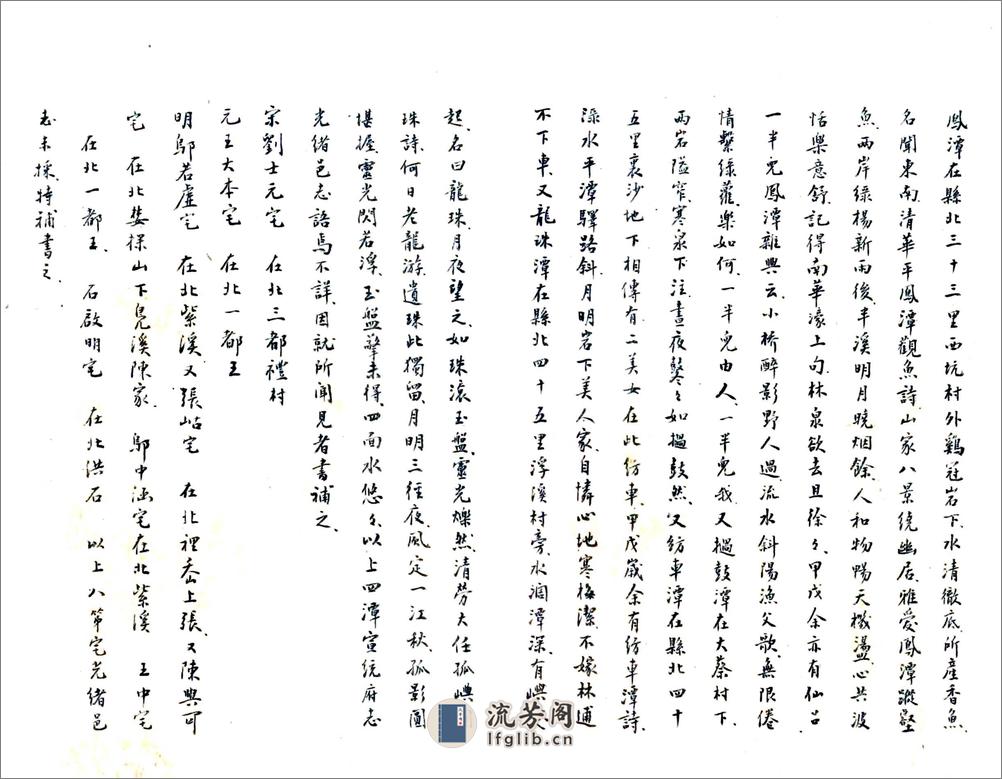 鳳潭在縣北三十三里西坑村外鷄冠岩下、水清徹底、所產香魚、
名聞東南、清華平鳳潭觀魚詩、山家八景繞幽居、雅愛鳳潭蹤壑
魚、兩岸綠楊新雨後、半溪明月晚烟餘、人和物暢天機盪、心共波
恬樂意舒、記得南華濠上句、林泉欲去且徐々、甲戊余亦有仙吕
一半兒鳳潭雜興云、小橋醉影野人過、流水斜陽漁父歌、無限倦
情繫綠蘿、樂如何、一半兒由人、一半兒我、又撾鼓潭在大蔡村下、
兩岩隘窄、寒泉下注、晝夜鼕々如撾鼓然、又紡車潭在縣北四十
五里裏沙地下、相傳有二美女在此紡車、甲戊嵗余有紡車潭詩、
淥水平潭驛路斜、月明岩下美人家、自憐心地寒梅潔、不嫁林逋
不下車、又龍珠潭在縣北四十五里浮溪村旁、水涸潭深、有嶼
起、名曰龍珠、月夜望之、如珠滚玉盤、靈光爍然、清勞大任孤嶼
珠詩、何日老龍游、遺珠此獨留、月明三徑夜、風定一江秋、孤影團
堪握、靈光閃若浮、玉盤擎未得、四面水悠々、以上四潭宣統府志
光緒邑志畧焉不詳、因就所聞見者書補之、
宋劉士元宅 在北三都禮村
元王大本宅 在北一都王
明鄔若虛宅 在北紫溪、又張岵宅 在北裡岙上張、又陳與可
宅 在北婺㟳山下凫溪陳家 鄔中涵宅在北紫溪 王中宅
在北一都王、 石啟明宅 在北洪石 以上八第宅光緒邑
志未採、特補書之、
流芳阁
lfglib.cn